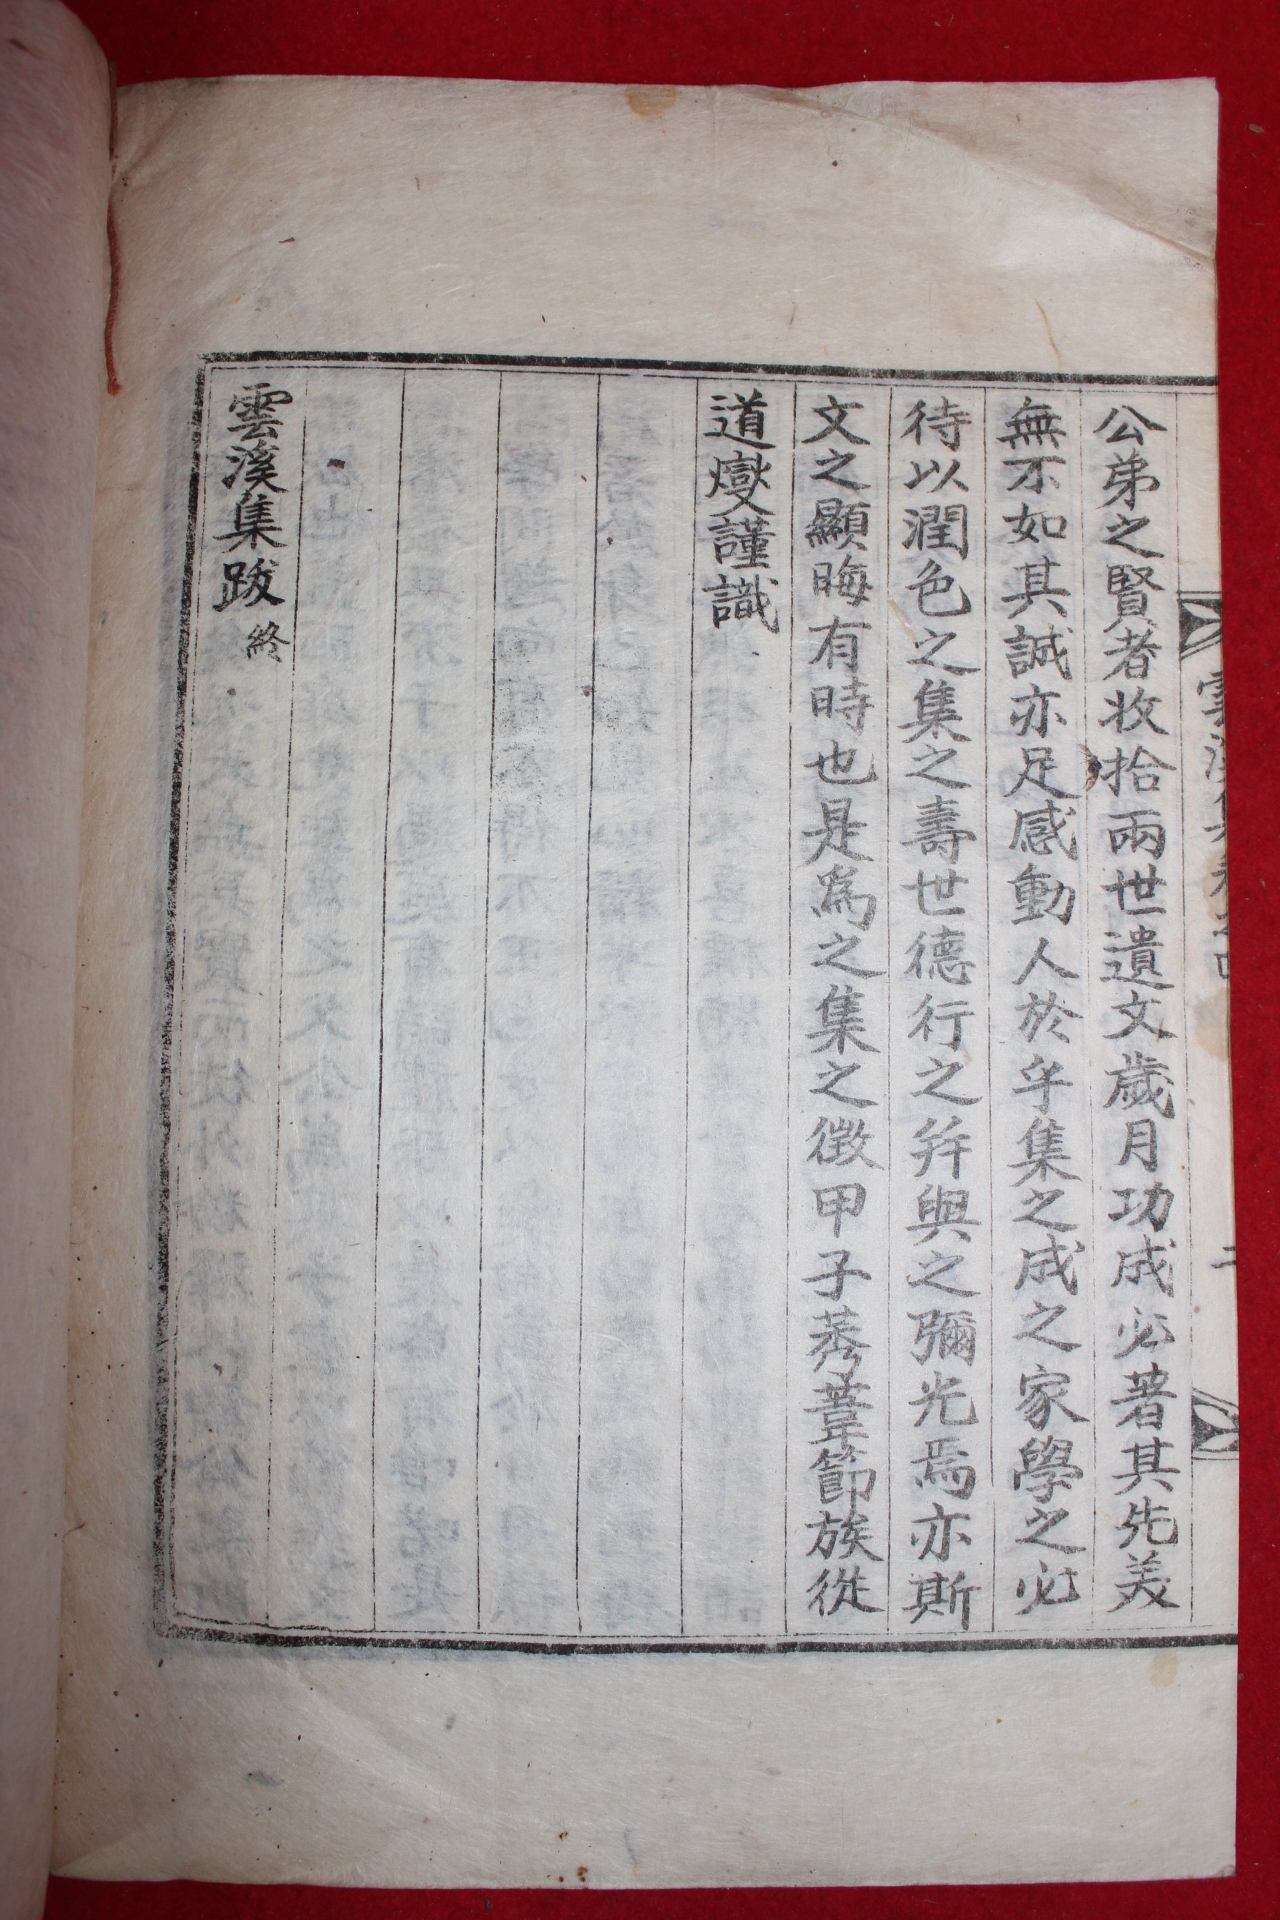 公弟之賢者收拾兩世遺文歲月功成必著其先美
無不如其誠亦足感動人於乎集之成之家學之必
待以潤色之集之壽世德行之並與之彌光焉亦斯
文之顯晦有時也是爲之集之徵甲子莠葦節族從
道燮謹識
雲溪集跋終